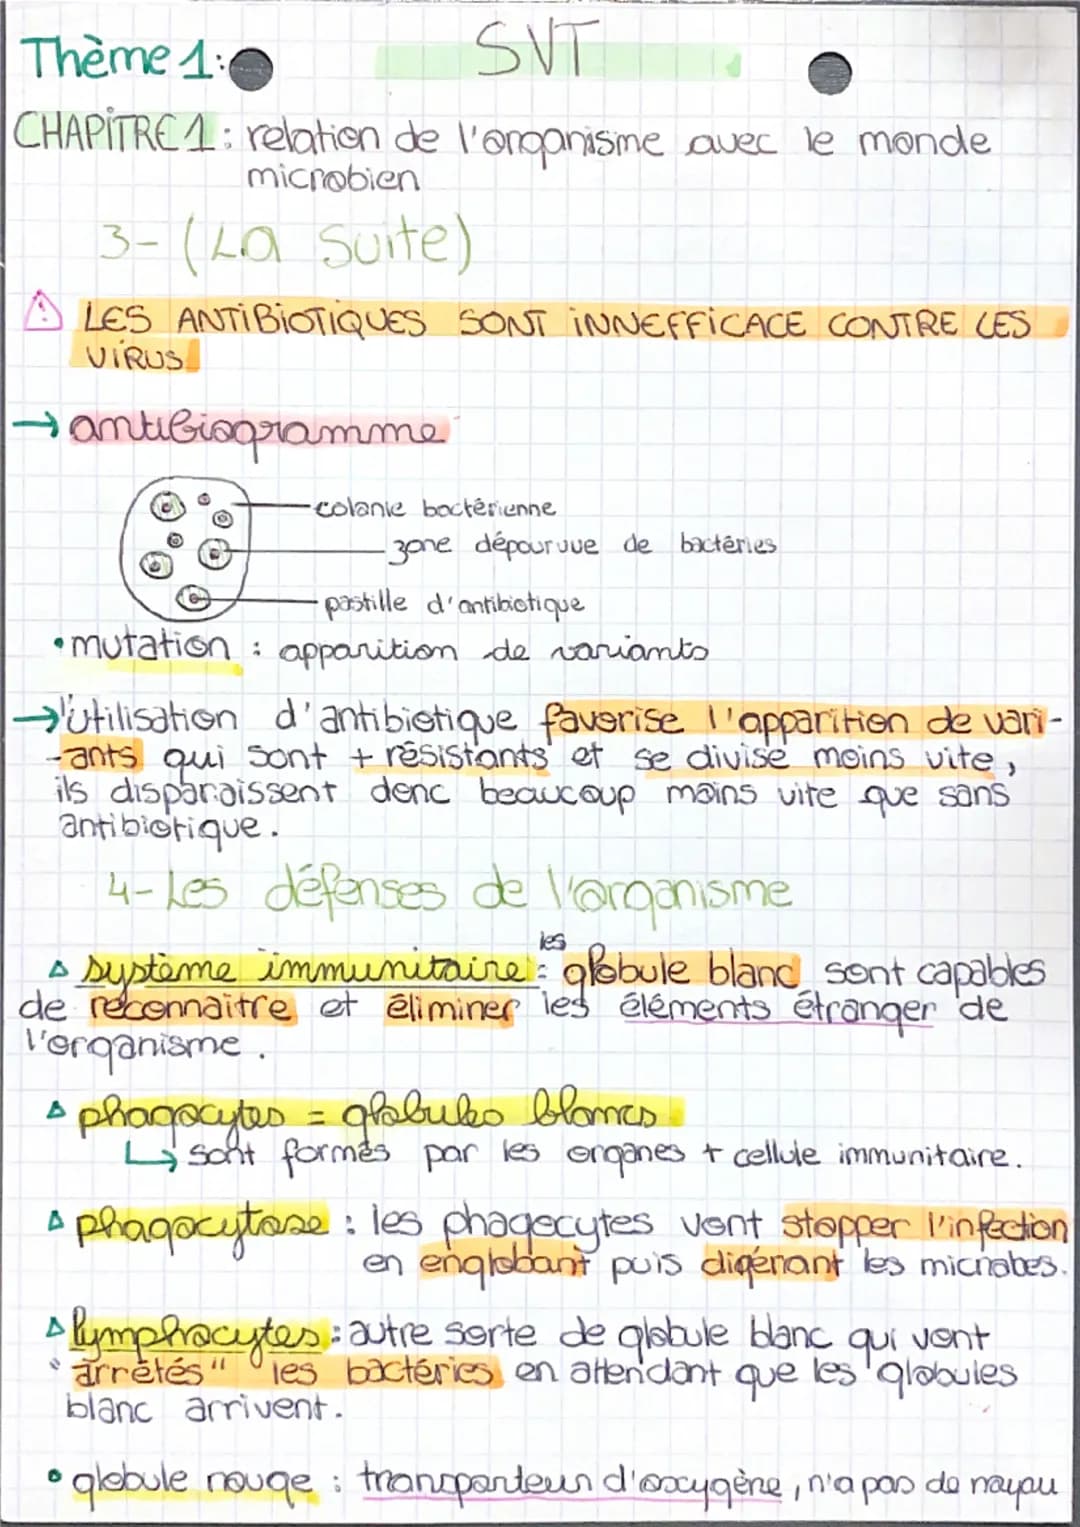 SVT
Thème 1:
CHAPITRE 1 : relation de l'organisme avec le monde
microbien
3- (La suite)
LES ANTIBIOTIQUES SONT INNEFFICACE CONTRE LES
VIRUS
→ antibiogramme
colonie bactérienne
zone dépourvue de bactéries
pastille d'antibiotique
• mutation : apparition de variants
→ l'utilisation d'antibiotique favorise l'apparition de vari-
-ants qui sont + résistants et se divise moins vite,
ils disparaissent donc beaucoup moins vite que sans
antibiotique.
4- Les défenses de l'organisme
les
△ système immunitaire : globule blanc sont capables
de reconnaitre et éliminer les éléments étranger de
l'organisme.
△ phagocytes = globules blancs
↳ sont formés par les organes + cellule immunitaire.
△ phagocytose : les phagocytes vont stopper l'infection
en englobant puis digérant les microbes.
△ lymphocytes : autre sorte de globule blanc qui vont
"arrêtés" les bactéries en attendant que les globules
blanc arrivent.
• globule rouge : transporteur d'oxygène, n'a pas de noyau